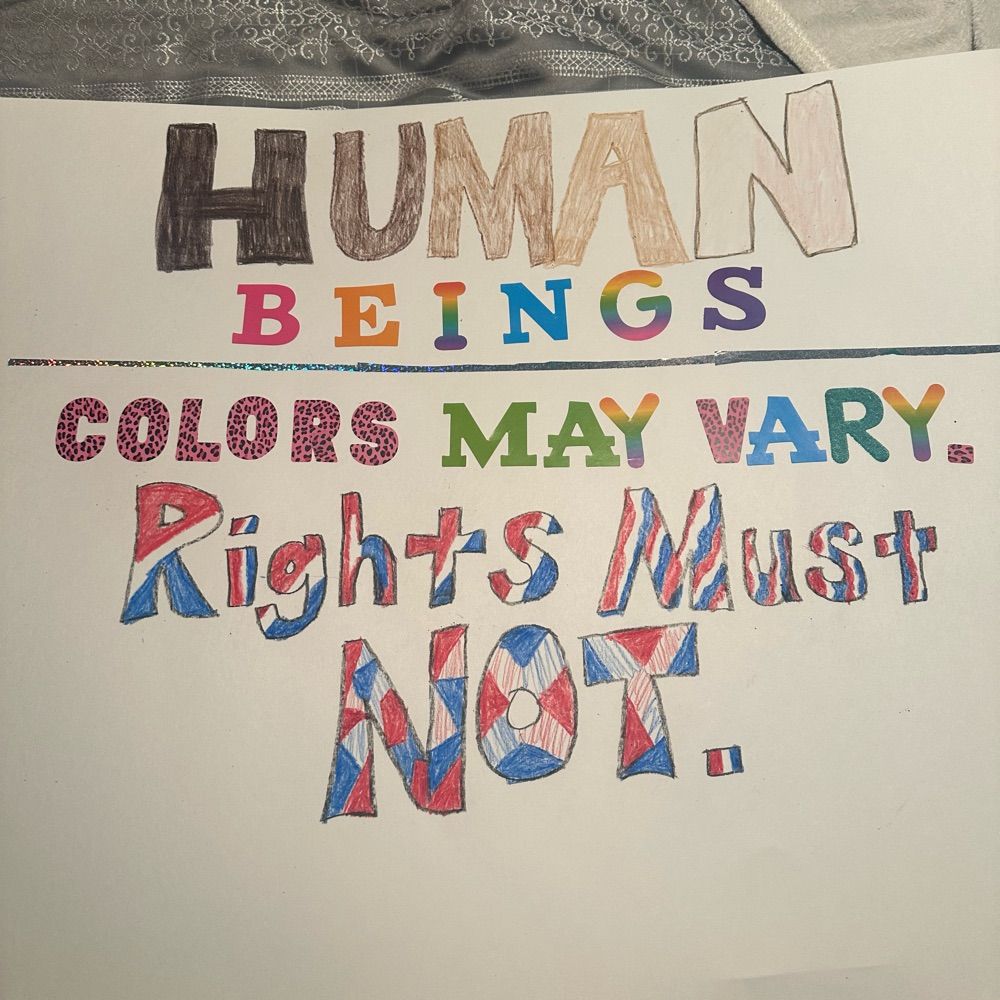 HUMAN
BEINGS
COLORS MAY VARY.
Rights Must
NOT.